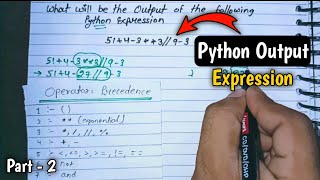 What will be the Output of the following
Python Expression
51+4-3**3//9-3
51+4-3**3//9-3
→ 51+4-27//9-3
Python Output
Expression
Operator Precedence
1 :- ()
2 :- ** (exponential)
3 :- *, /, //, %
4 :- + -
<, <=, >, >=, !=, ==
not
and
Part - 2